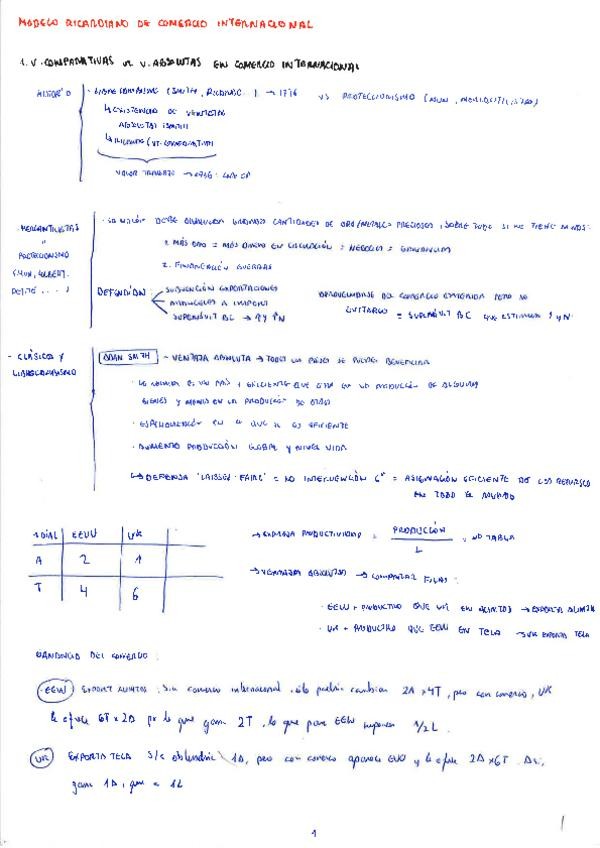 MODELO RICARDIANO DE COMERCIO INTERNACIONAL
1. V. COMPARATIVAS vs V. ABSOLUTAS EN COMERCIO INTERNACIONAL
LIBRECAMBISMO (SMITH, RICARDO...) → 1776 vs PROTECCIONISMO (MUN, MERCANTILISTAS)
↳ EXISTENCIA DE VENTAJAS
ABSOLUTAS (SMITH)
↳ RICARDO (VT. COMPARATIVA)
VALOR TRABAJO →
MERCANTILISTAS
PROTECCIONISMO
(MUN, COLBERT,
PETTIT ....)
· LA NACIÓN DEBE CANTIDADES DE ORO/METALES PRECIOSOS, SOBRE TODO SI NO TIENE MINAS:
1. MÁS ORO = MÁS DINERO EN CIRCULACIÓN = NEGOCIOS = GANANCIAS
2. FINANCIACIÓN GUERRAS
DEFENDÍAN:
SUBVENCIÓN EXPORTACIONES
ARANCELES A IMPORT
SUPERÁVIT BC → ↑Y ↑N
DEL COMERCIO = SUPERÁVIT BC QUE ESTIMULA Y y N.
- CLÁSICOS Y
LIBRECAMBISMO
ADAM SMITH - VENTAJA ABSOLUTA → TODOS LOS PAÍSES SE PUEDEN BENEFICIAR
· ES UN PAÍS + EFICIENTE QUE OTRO EN LA PRODUCCIÓN DE ALGUNOS
BIENES Y MENOS EN LA PRODUCCIÓN DE OTROS
· ESPECIALIZACIÓN EN EL QUE + ES EFICIENTE
· AUMENTO PRODUCCIÓN GLOBAL Y NIVEL VIDA
↳ DEFENSA "LAISSEZ-FAIRE" = NO INTERVENCIÓN Gº = ASIGNACIÓN EFICIENTE DE LOS RECURSOS
EN TODO EL MUNDO
EEUU UK
A 2 1
T 4 6
→ PRODUCTIVIDAD = PRODUCCIÓN / L, NO TABLA
→ VENTAJA ABSOLUTA → COMPARAR FILAS:
· EEUU + PRODUCTIVO QUE UK EN ALIMTOS → EXPORTA ALIM
· UK + PRODUCTIVO QUE EEUU EN TELA → UK EXPORTA TELA
GANANCIA DEL COMERCIO:
EEUU EXPORT ALIMTOS: Sin comercio internacional, sólo podría cambiar 2A x 4T, pero con comercio, UK
le ofrece 6T x 2A por lo que gana 2T, lo que para EEUU supone 1/2 L.
UK EXPORTA TELA s/c obtendría 1A, pero con comercio aparece EEUU y le ofrece 2A x 6T. Así,
gana 1A, que = 1L
1